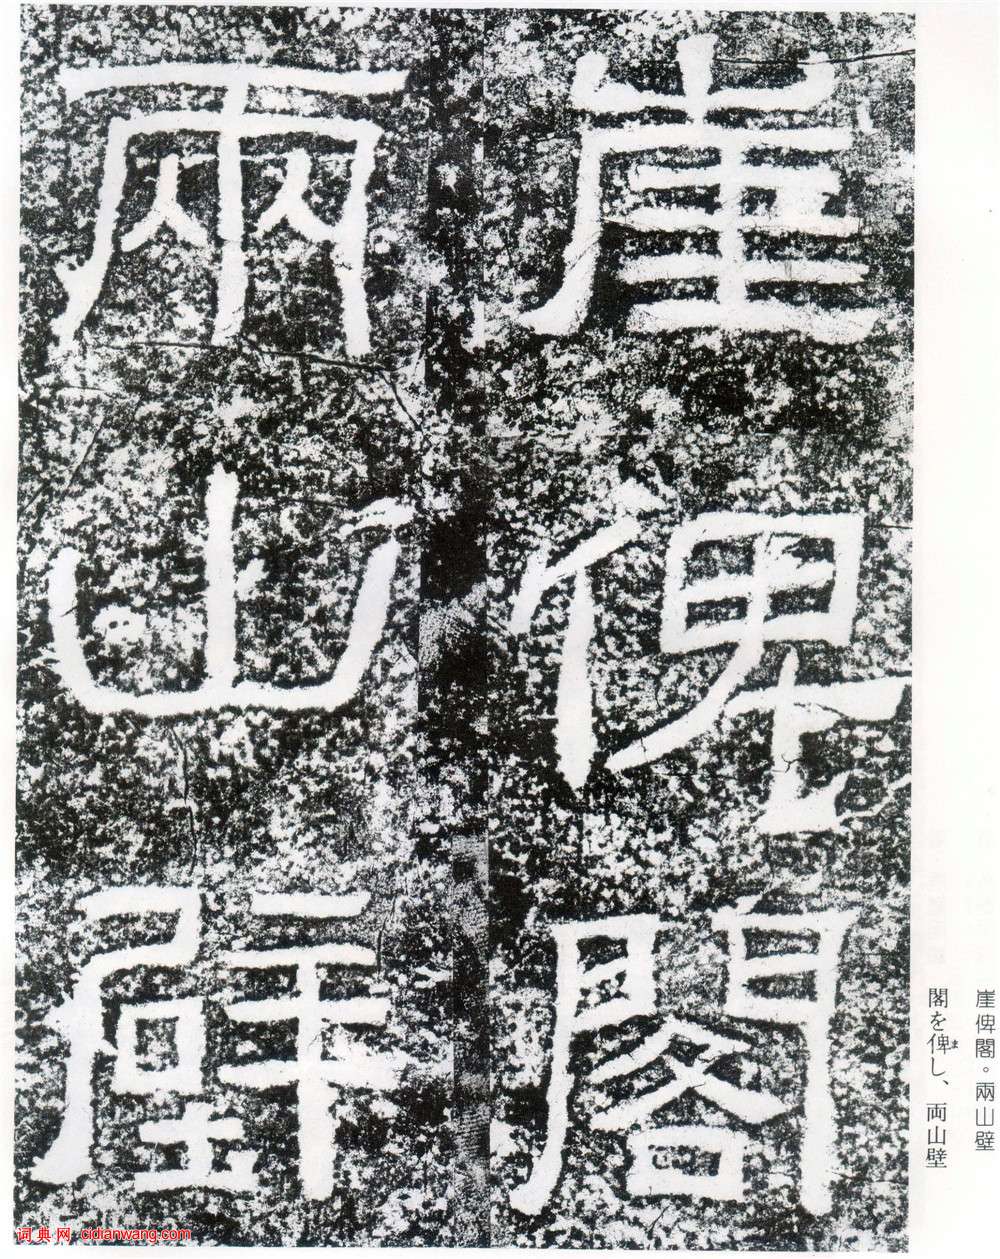 崖俾閣
兩山壁
崖俾閣。兩山壁
閣を俾し、両山壁
ま
词典网 cidianwang.com